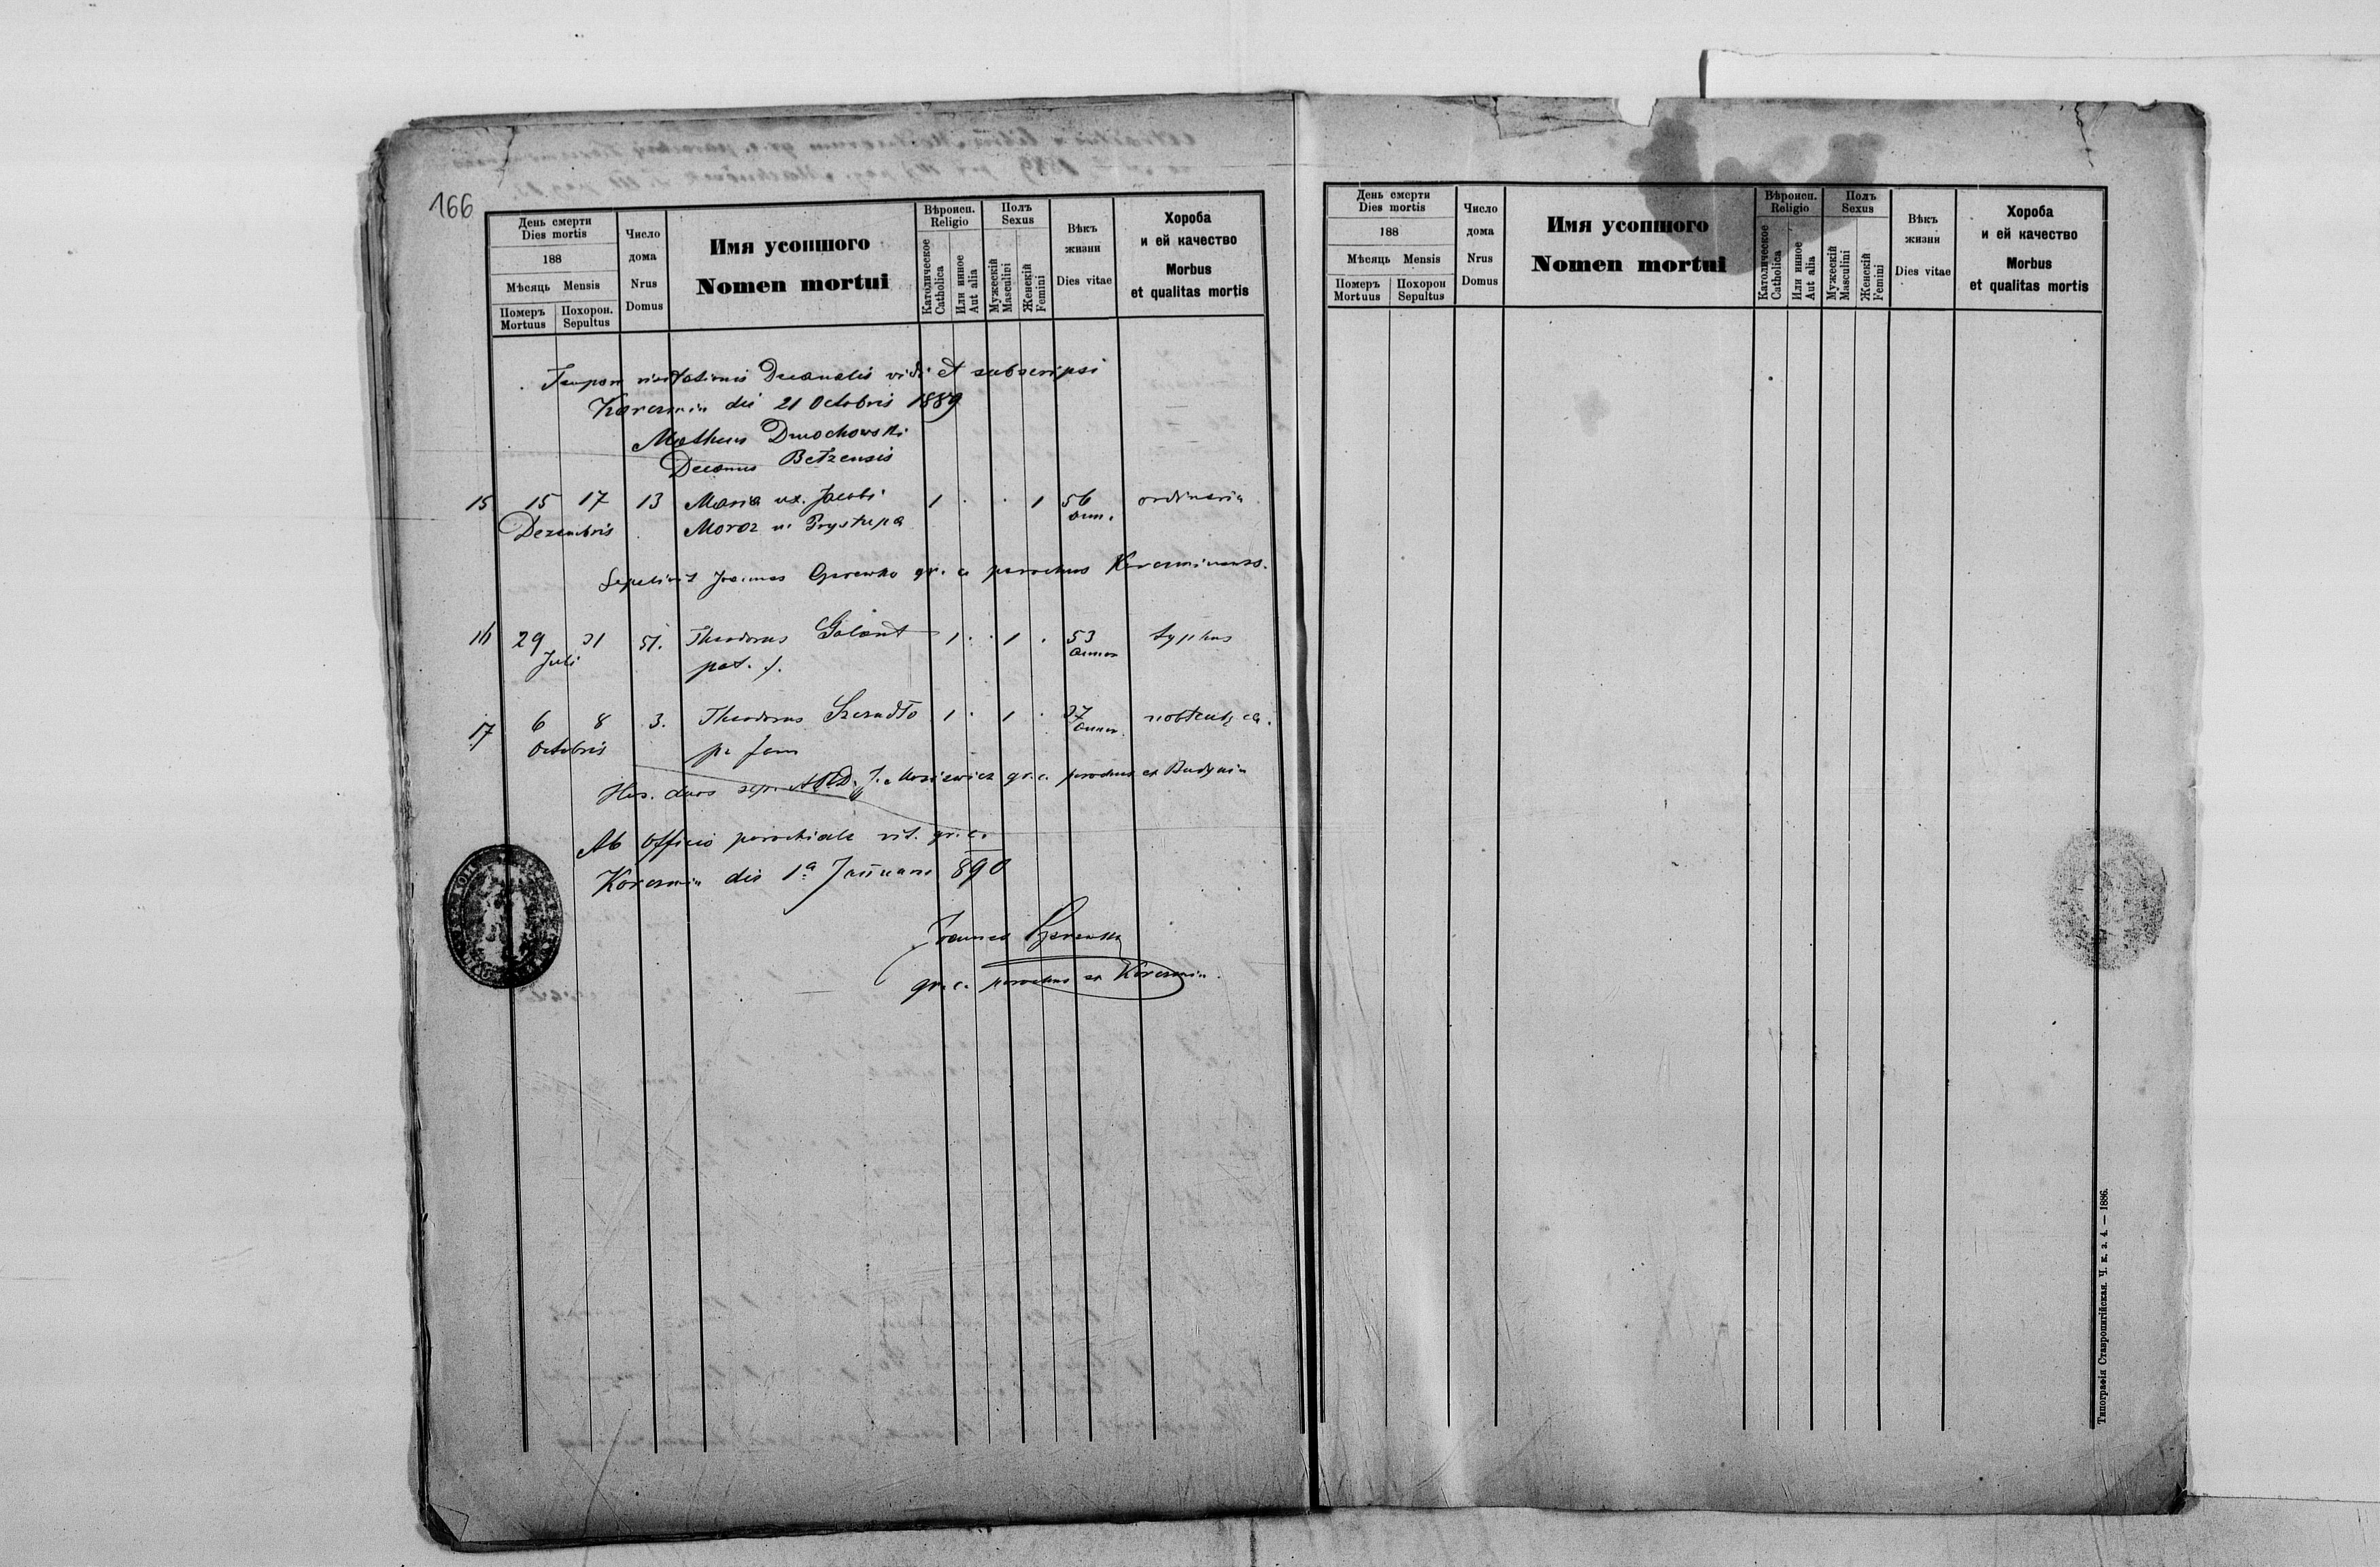 166
День смерти
Dies mortis
188
Мѣсяць Mensis
Померъ
Mortuus
Похорон.
Sepultus
Число
дома
Nrus
Domus
Имя усопшого
Nomen mortui
Вѣроисп.
Religio
Католическое
Catholica
Или инное
Aut alia
Полъ
Sexus
Мужескій
Masculini
Женскій
Femini
Вѣкъ
жизни
Dies vitae
Хороба
и ей качество
Morbus
et qualitas mortis
Tempore visitationis Decanalis vidi et subscripsi
Korczmin die 21 Octobris 1889
Matheus
Decanus Bełzensis
15 15 17 13 Maria ux. Jacobi 1 · · 1 56 ordinaria
Dezembris Moroz n. Prystupa ann.
Sepelivit Joannes gr. c. parochus
16 29 31 51. Theodorus Galant 1 · 1 · 53 typhus
Juli pat. f. annor
17 6 8 3. Theodorus 1 · 1 · 37
Octobris annor.
Hos duos sep. gr. c. parochus ex Budynin
Ab Officio parochiale rit. gr. c.
Korczmin die 1ª Januarii 890
Joannes
gr. c. parochus ex Korczmin.
День смерти
Dies mortis
188
Мѣсяць Mensis
Померъ
Mortuus
Похорон
Sepultus
Число
дома
Nrus
Domus
Имя усопшого
Nomen mortui
Вѣроисп.
Religio
Католическое
Catholica
Или инное
Aut alia
Полъ
Sexus
Мужескій
Masculini
Женскій
Femini
Вѣкъ
жизни
Dies vitae
Хороба
и ей качество
Morbus
et qualitas mortis
Типографія Ставропигійская. Ч. к. з. 4. — 1886.